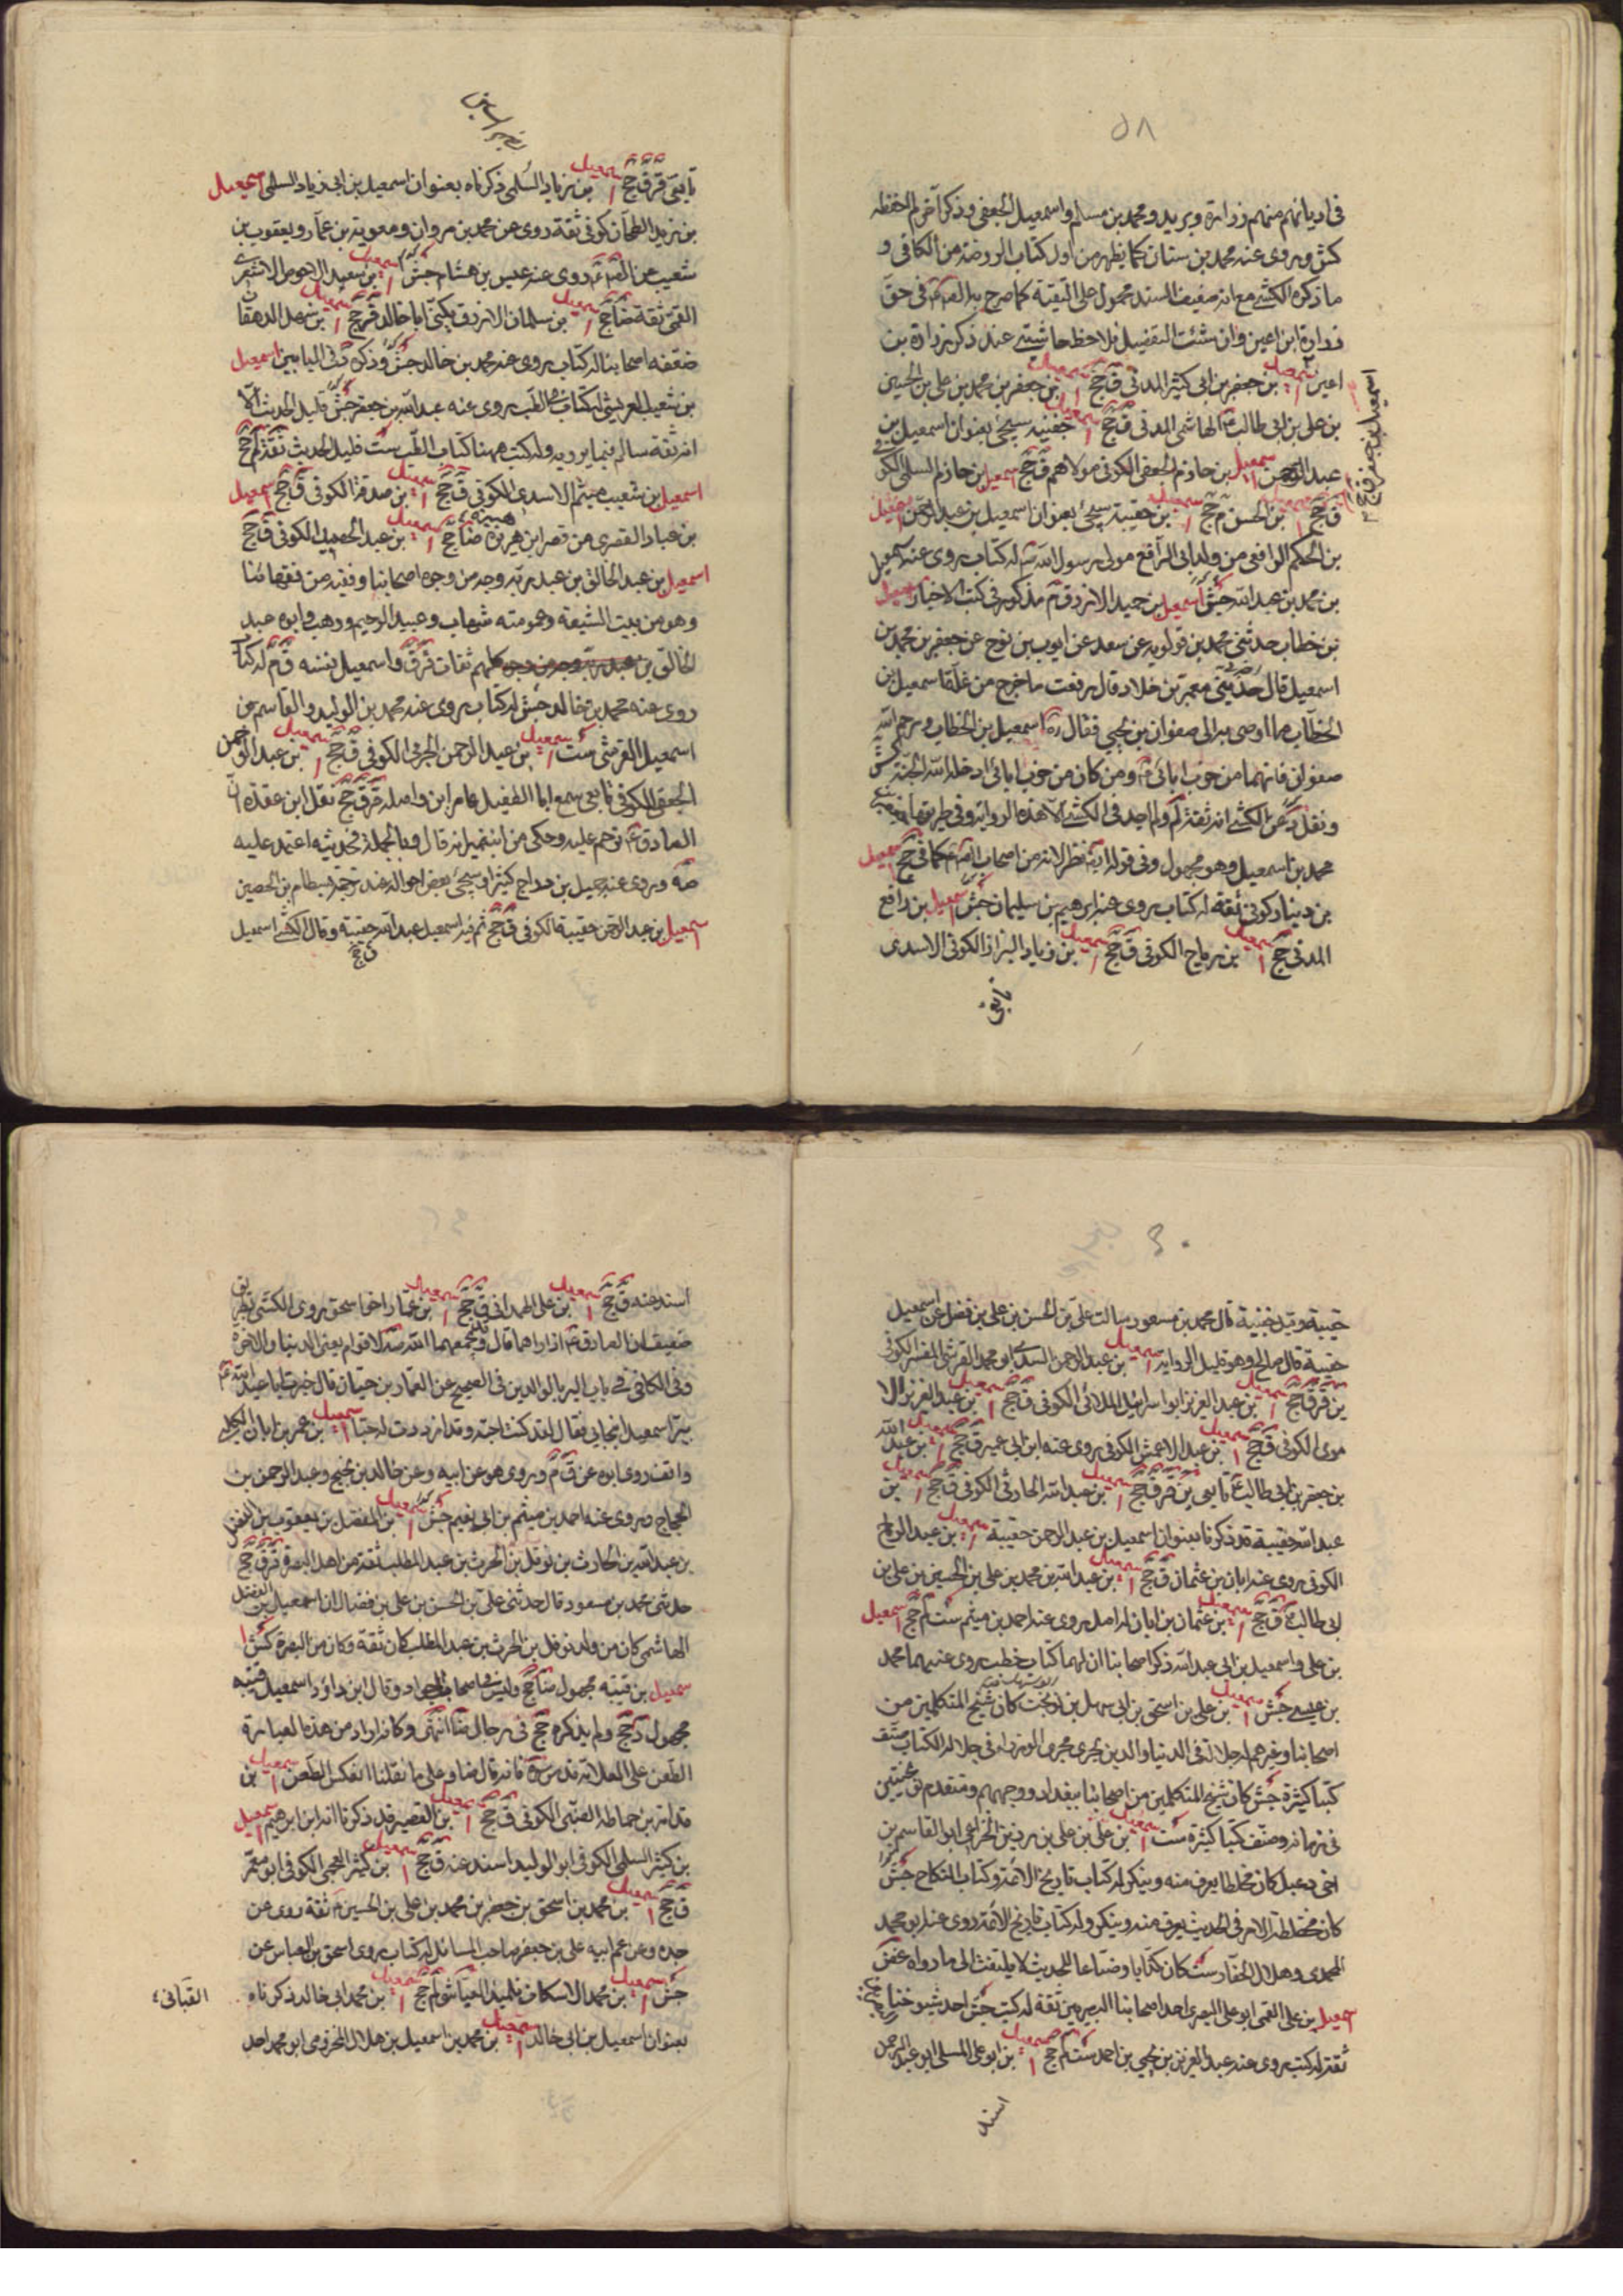 ٥٨
فى اديانهم منهم زرارة وبريد ومحمد بن مسلم واسمعيل الجعفى وذكر آخر لم احفظه
كش ويروى عنه محمد بن سنان كما يظهر من اول كتاب الروضة من الكافى و
ما ذكره الكشى مع انه ضعيف السند محمول على التقية كما صرح به فى حق
زرارة ابن اعين وان شئت التفصيل فلاحظ حاشيتى عند ذكر زرارة بن
اعين اسمعيل بن جعفر بن ابى كثير المدنى ق جخ اسمعيل بن جعفر بن محمد بن على بن الحسين
بن على بن ابى طالب الهاشمى المدنى ق جخ اسمعيل جفينه سيجئ بعنوان اسمعيل بن
عبد الرحمن اسمعيل بن حازم الجعفى الكوفى مولاهم ق جخ اسمعيل بن حازم السلمى الكوفى
ق جخ اسمعيل بن الحسن م جخ اسمعيل بن حقيبة سيجئ بعنوان اسمعيل بن عبد الرحمن اسمعيل
بن الحكم الرافعى من ولد ابى الرافع مولى رسول الله له كتاب يروى عنه اسمعيل
بن محمد بن عبد الله جش اسمعيل بن حميد الازرق م مذكور فى كتب الاخبار اسمعيل
بن خطاب حدثنى محمد بن قولويه عن سعد عن ايوب بن نوح عن جعفر بن محمد بن
اسمعيل قال حدثنى معمر بن خلاد قال رفعت ما خرج من غلة اسمعيل بن
الخطاب مما اوصى به الى صفوان بن يحيى فقال ره اسمعيل بن الخطاب ورحم الله
صفوان فانهما من حزب ابائى ومن كان من حزب ابائى ادخله الله الجنة كش
ونقل عن الكشى انه ثقة ولم اجد فى الكشى الا هذه الرواية وفى طريقها جعفر بن
محمد بن اسمعيل وهو مجهول وفى قوله انه نظر لانه من اصحاب كما فى جخ اسمعيل
بن دينار كوفى ثقة له كتاب يروى عنه ابرهيم بن سليمان جش اسمعيل بن رافع
المدنى جخ اسمعيل بن رياح الكوفى ق جخ اسمعيل بن زياد البزاز الكوفى الاسدى
تابعى
اسمعيل بن جعفر ق جخ
تابعى قر ق جخ اسمعيل بن زياد السلمى ذكرناه بعنوان اسمعيل بن ابى زياد السلمى اسمعيل
بن زيد الطحان كوفى ثقة روى عن محمد بن مروان ومعوية بن عمار ويعقوب بن
شعيب عن روى عنه عبيس بن هشام جش اسمعيل بن سعد الاحوص الاشعرى
القمى ثقة ضا جخ اسمعيل بن سلمان الازرق يكنى ابا خالد قر جخ اسمعيل بن سهل الدهقان
ضعفه اصحابنا له كتاب يروى عنه محمد بن خالد جش وذكره فى البابين اسمعيل
بن شعيب العريشى له كتاب الطب يروى عنه عبد الله بن جعفر جش قليل الحديث الا
انه ثقة سالم فيما يرويه وله كتب منها كتاب الطب ست قليل الحديث ثقة لم جخ
اسمعيل بن شعيب ميثم الاسدى الكوفى ق جخ اسمعيل بن صدقة الكوفى ق جخ اسمعيل
بن عباد القصرى من قصر ابن هبيرة ضا جخ اسمعيل بن عبد الحميد الكوفى ق جخ
اسمعيل بن عبد الخالق بن عبد ربه وجه من وجوه اصحابنا وفقيه من فقهائنا
وهو من بيت الشيعة وعمومته شهاب وعبد الرحيم ووهب وابوه عبد
الخالق بن عبد ربه كلهم ثقات واسمعيل بنفسه ق م له كتاب
روى عنه محمد بن خالد جش له كتاب يروى عنه محمد بن الوليد والقاسم بن
اسمعيل القرشى ست اسمعيل بن عبد الرحمن الجرمى الكوفى ق جخ اسمعيل بن عبد الرحمن
الجعفى الكوفى تابعى سمع ابا الطفيل عامر ابن واصله قر ق جخ نقل ابن عقدة ان
الصادق ترحم عليه وحكى عن ابن نمير انه قال وبالجملة فحديثه اعتمد عليه
صه ويروى عنه جميل بن دراج كثيرا وسيجئ بعض احواله عند ترجمة بسطام بن الحصين
اسمعيل بن عبد الرحمن حقيبة الكوفى ق جخ ثم فيه اسمعيل عبد الله حقيبة وقال الكشى اسمعيل
ق جخ
٦٠
حقيبة وقيل جفينة قال محمد بن مسعود سالت على بن الحسن بن على بن فضل عن اسمعيل
حقيبة قال صالح وهو قليل الرواية اسمعيل بن عبد الرحمن السدى ابو محمد القرشى المفسر الكوفى
ين قر ق جخ اسمعيل بن عبد العزيز ابو اسرائيل الملائى الكوفى ق جخ اسمعيل بن عبد العزيز الا
موى الكوفى ق جخ اسمعيل بن عبد الاعمش الكوفى يروى عنه ابن ابى عمير ق جخ اسمعيل بن عبد الله
بن جعفر بن ابى طالب تابعى ين قر ق جخ اسمعيل بن عبد الله الحارثى الكوفى ق جخ اسمعيل بن
عبد الله حقيبة قد ذكرنا بعنوان اسمعيل بن عبد الرحمن حقيبة اسمعيل بن عبد الرماح
الكوفى يروى عنه ابان بن عثمان ق جخ اسمعيل بن عبد الله بن محمد بن على بن الحسين بن على بن
ابى طالب ق جخ اسمعيل بن عثمان بن ابان له اصل يروى عنه احمد بن ميثم ست لم جخ اسمعيل
بن على واسمعيل بن ابى عبد الله ذكر اصحابنا ان لهما كتاب خطب يروى عنهما محمد
بن عيسى جش اسمعيل بن على بن اسحق بن ابى سهل بن نوبخت كان شيخ المتكلمين من
اصحابنا وغيرهم له جلالة فى الدنيا والدين يجرى مجرى الوزراء فى جلالة الكتاب صنف
كتبا كثيرة جش كان شيخ المتكلمين من اصحابنا ببغداد ووجههم ومتقدم نوبختين
فى زمانه وصنف كتبا كثيرة ست اسمعيل بن على بن على بن رزين الخزاعى ابو القاسم بن
اخى دعبل كان مخلطا يعرف منه وينكر له كتاب تاريخ الائمة وكتاب النكاح جش
كان مختلط الامر فى الحديث يعرف منه وينكر وله كتاب تاريخ الائمة روى عنه ابو محمد
المحمدى وهلال الحفار ست كان كذابا وضاعا للحديث لا يلتفت الى ما رواه
اسمعيل بن على القمى ابو على البصرى احد اصحابنا البصريين ثقة له كتب جش احد شيوخنا
ثقة له كتب يروى عنه عبد العزيز بن يحيى بن احمد ست لم جخ اسمعيل بن ابو على المسلى ابو عبد الرحمن
اسند
اسند عنه ق جخ اسمعيل بن على الهمدانى ق جخ اسمعيل بن عمار اخا اسحق روى الكشى بطريق
ضعيف ان الصادق اذا راهما قال وقد يجمعهما الله لاقوام يعنى الدنيا والاخرة
وفى الكافى فى باب البر بالوالدين فى الصحيح عن العمار بن حيان قال خبرت ابا عبد الله
ببر اسمعيل ابنى بى فقال لقد كنت احبه وقد ازددت له حبا اسمعيل بن عمر بن ابان الكلبى
واقف روى ابوه عن ق م ويروى هو عن ابيه وعن خالد بن نجيح وعبد الرحمن بن
الحجاج ويروى عنه احمد بن ميثم بن ابى نعيم جش اسمعيل بن الفضل بن يعقوب بن الفضل
بن عبد الله بن الحارث بن نوفل بن الحرث بن عبد المطلب ثقة من اهل البصرة قر ق جخ
حدثنى محمد بن مسعود قال حدثنى على بن الحسن بن على بن فضال ان اسمعيل بن الفضل
الهاشمى كان من ولد نوفل بن الحرث بن عبد المطلب كان ثقة وكان من البصرة كش
اسمعيل بن قتيبه مجهول ضا جخ وليس اصحاب الجواد وقال ابن داؤد اسمعيل قتيبه
مجهول د جخ ولم يذكره جخ فى رجال ضا انتهى وكانه اراد من هذه العبارة
الطعن على العلامة قدس سره فانه قال ضا وعلى ما نقلنا انعكس الطعن اسمعيل بن
قدامة بن حماطه الضبى الكوفى ق جخ اسمعيل بن القصير قد ذكرنا انه ابن ابرهيم اسمعيل
بن كثير السلمى الكوفى ابو الوليد اسند عنه ق جخ اسمعيل بن كثير العجلى الكوفى ابو معمر
ق جخ اسمعيل بن محمد بن اسحق بن جعفر بن محمد بن على بن الحسين ثقة روى عن
جده وعن عم ابيه على بن جعفر صاحب المسائل له كتاب يروى اسحق بن العباس عن
جش اسمعيل بن محمد الاسكاف تلميذ العياشى لم جخ اسمعيل بن محمد ابى خالد ذكرناه
بعنوان اسمعيل بن ابى خالد اسمعيل بن محمد بن اسمعيل بن هلال المخزومى ابو محمد احد
القبانى